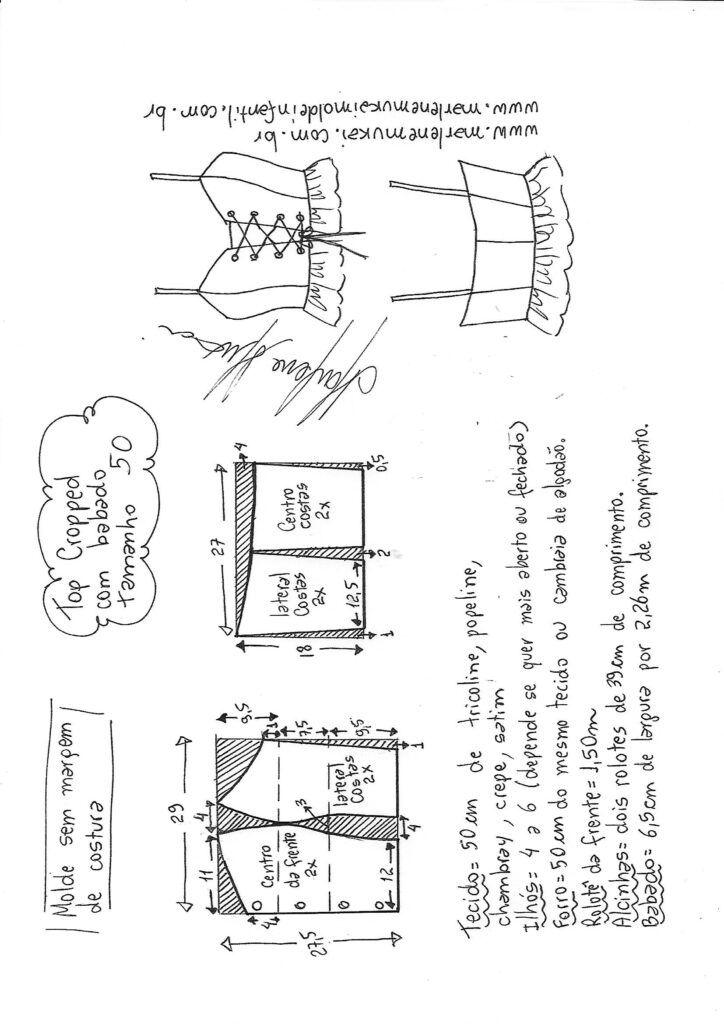 Molde sem margem
de costura
Top Cropped
com babado
tamanho 50
29
11
4
9,5
1
7,5
9,5
1
4
27,5
Centro
da frente
2x
3
lateral
Costas
2x
12
4
27
4
18
lateral
Costas
2x
Centro
costas
2x
12,5
1
2
0,5
Marlene Mukai
www.marlenemukai.com.br
www.marlenemukaimoldeinfantil.com.br
Tecido= 50cm de tricoline, popeline,
chambray, crepe, satim
Ilhós= 4 a 6 (depende se quer mais aberto ou fechado)
Forro= 50cm do mesmo tecido ou cambraia de algodão.
Rolotê da frente= 1,50m
Alcinhas= dois rolotes de 39cm de comprimento.
Babado= 6,5cm de largura por 2,26m de comprimento.